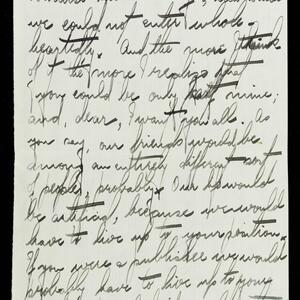 we could not enter whole-
heartedly. And the more I think
of it the more I realize that
you could be only part mine;
and, dear, I want you all. As
you say, our friends would be
among an entirely different sort
of people, probably. Our would
be artificial, because we would
have to live up to your position.
If you were a publisher we would
probably have to live up to your